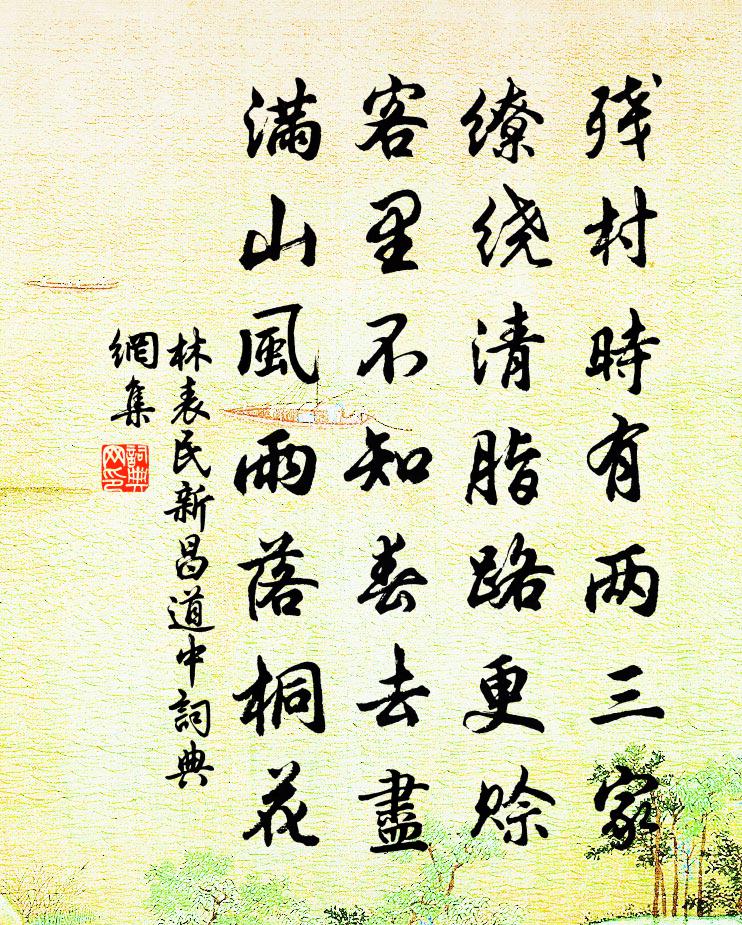 残村時有两三家
缭绕清脂路更赊
客里不知春去盡
滿山風雨落桐花
林表民新昌道中詞典
網集
詞典
网印